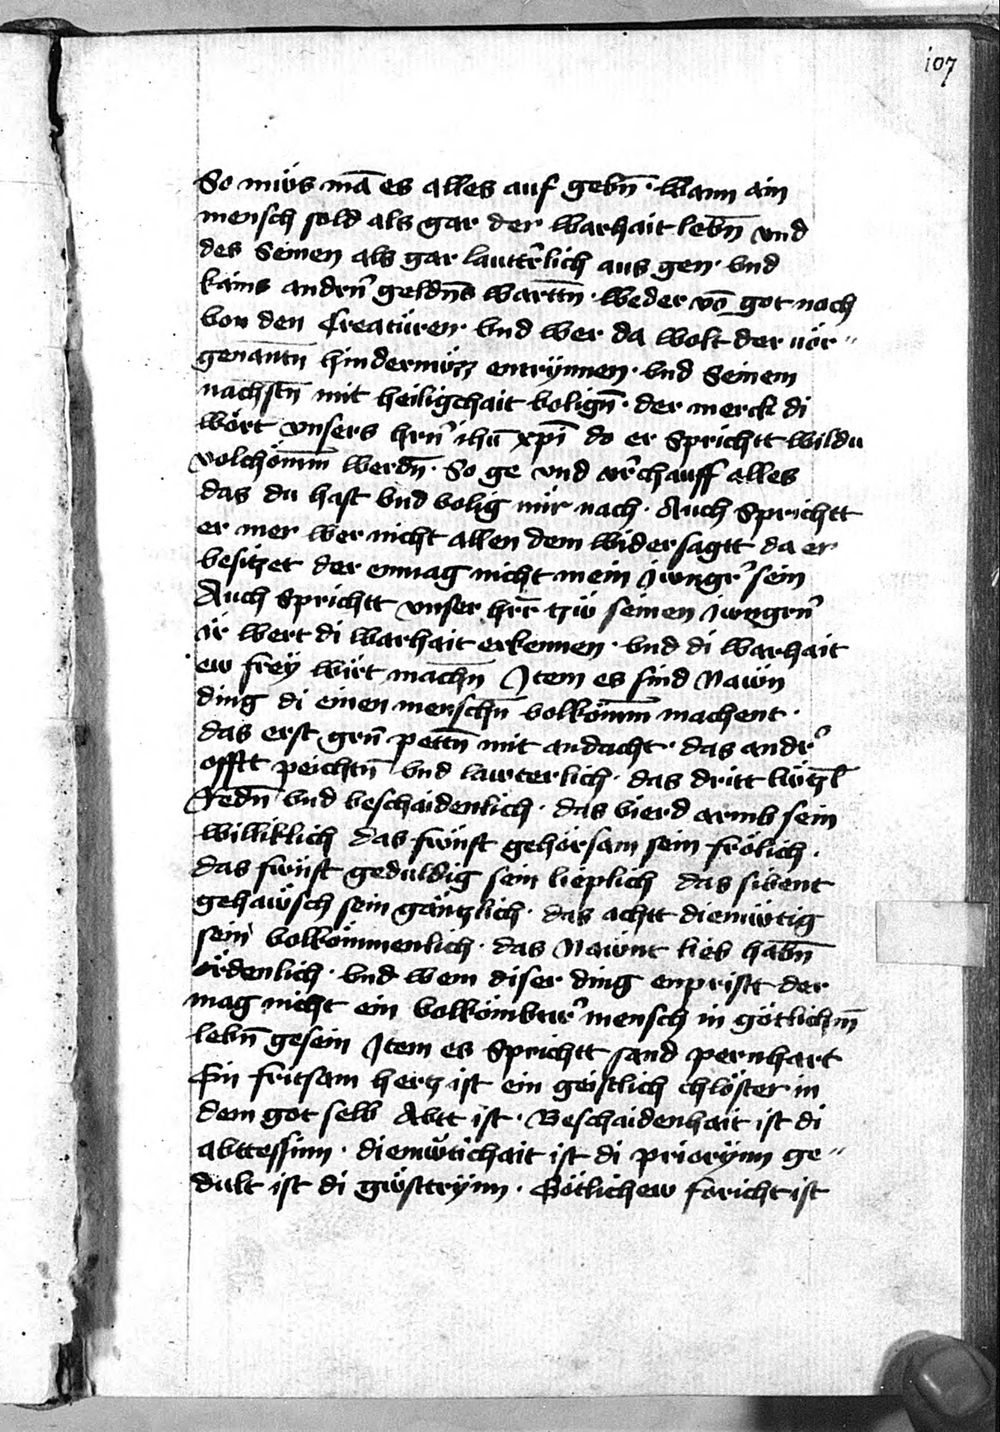 107
So müs mā es alles auf gebn̄ · Wann ain
mensch sold als gar der warhait lebn̄ vnd
des Seinen als gar lautt̕lich aus gen · vnd
kains andrn̕ geldn̄s warttn̄ · Weder vō got noch
von den Creatüren · Vnd wer da wolt der vör〃
genantn̄ hindernüzz entrÿnnen · vnd Seinem
nachstn̄ mit heiligchait volign̄ · der merck di
wört vnsers hrn̕ ihū xp̄i do er Sprichtt wildu
volchömm̄ werdn̄ · So ge vnd v̕chauff alles
das du hast vnd volig mir nach · Auch Sprichtt
er mer wer nicht allen dem widersagtt da er
besitzet der enmag nicht mein Jungr̕ sein
Auch Sprichtt vnser hrr̄ tzü seinen Jungrn̕
ir wert di warhait erkennen · vnd di warhait
ew freÿ wirt machn̄ Jtem es sind Nawn
ding di einen menschn̄ volkömm̄ machent ·
das erst grn̄ pettn̄ mit andacht · das andr̕
offtt peichtn̄ vnd lawterlich · das dritt lützl̄
Redn̄ vnd beschaidenlich · das vierd armb sein
williklich das fwnft gehorsam sein frölich ·
das fwnft geduldig sein lieplich das sibent
gehawsch sein gäntzlich · das achtt diemütig
sein volkömmenlich · das Nawnt lieb habn̄
ördenlich · vnd wem diser ding enpristt der
mag nicht ein volkömbner̕ mensch in götlichm̄
lebn̄ gesein Jtem es Sprichtt sand pernhart
Ein fritsam hertz ist ein geistlich chlöster in
dem got selb Abtt ist · Beschaidenhait ist di
abttessinn · diemütichait ist di priorÿnn ge〃
dult ist di güsttrÿnn · Götlichew foricht ist